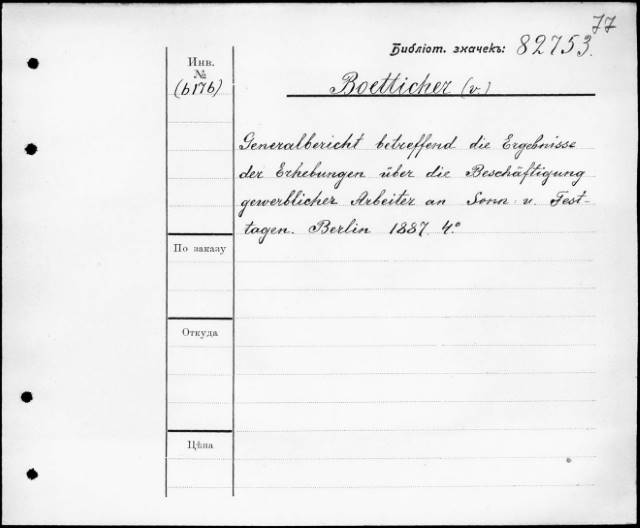 77
Библіот. значекъ: 82753.
Инв.
№
(6176)
Boetticher (v.)
Generalbericht betreffend die Ergebnisse
der Erhebungen über die Beschäftigung
gewerblicher Arbeiter an Sonn- u. Fest-
tagen. Berlin 1887. 4°
По заказу
Откуда
Цѣна